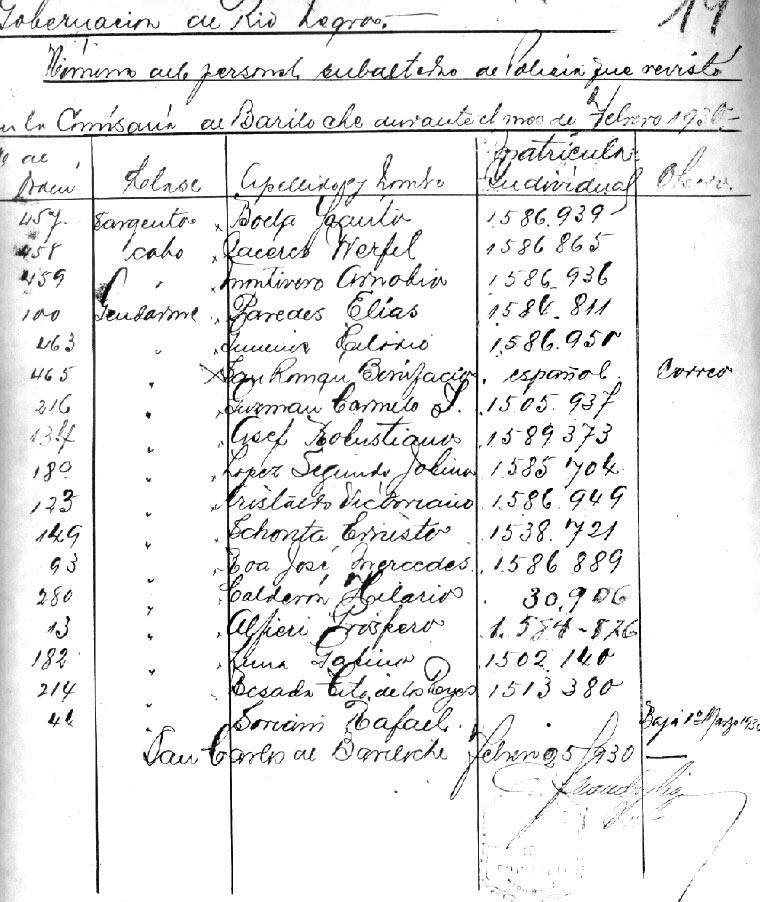 Gobernacion de Rio Negro.- 19
Nómina del personal subalterno de Policia que revistó
en la Comisaria de Bariloche durante el mes de Febrero 1930-
de Clase Apellido y Nombre matricula Individual Observ.
457 Sargento Boeda Jacinto 1586.939
458 cabo Werfel 1586 865
459 " montivero Arnobio 1586.936
100 Gendarme Paredes Elías 1586.811
263 " 1586.950
465 " San Roman Bonifacio español. Correo
216 " Guzmán Carmelo S. 1505.937
" Asef Robustiano 1589373
180 " Lopez Segundo 1585704
123 " Cristaldo Victoriano 1586.949
149 " Echonta Ernesto 1538.721
93 " Roa José Mercedes. 1586 889
280 " Calderón Hilario 30.906
13 " Alfieri Próspero 1.584-826
182 " Luna Gabino 1502.140
214 " Besada Tito de los Reyes 1513380
" Soriani Rafael. Baja 1º Marzo 1930
San Carlos de Bariloche Febrero 25/930 —